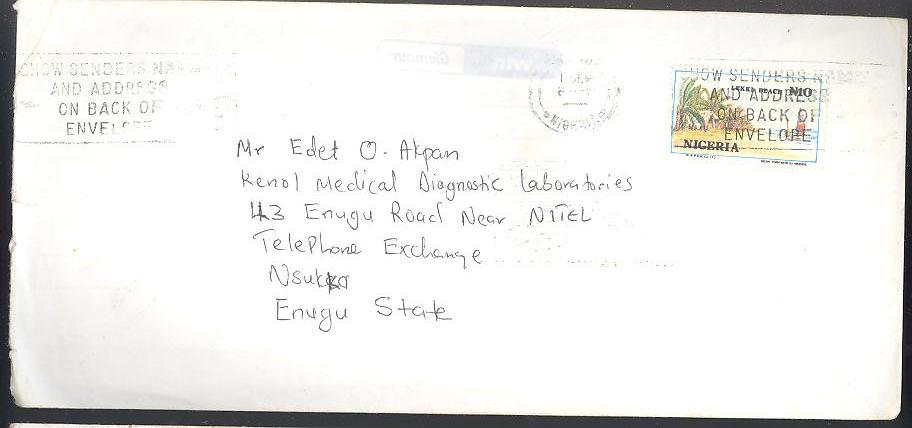 SHOW SENDERS NA
AND ADDRESS
ON BACK OF
ENVELOPE
NIGERIA
SHOW SENDERS N
AND ADDRESS
ON BACK OF
ENVELOPE
LEKKI BEACH ₦10
NIGERIA
Mr Edet O. Akpan
Kenol Medical Diagnostic Laboratories
43 Enugu Road Near NITEL
Telephone Exchange
Nsukka
Enugu State